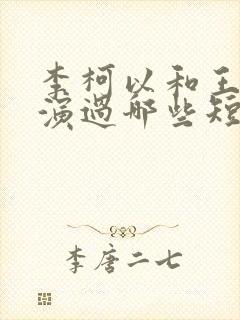 李柯以和王
演过哪些短
李唐二七